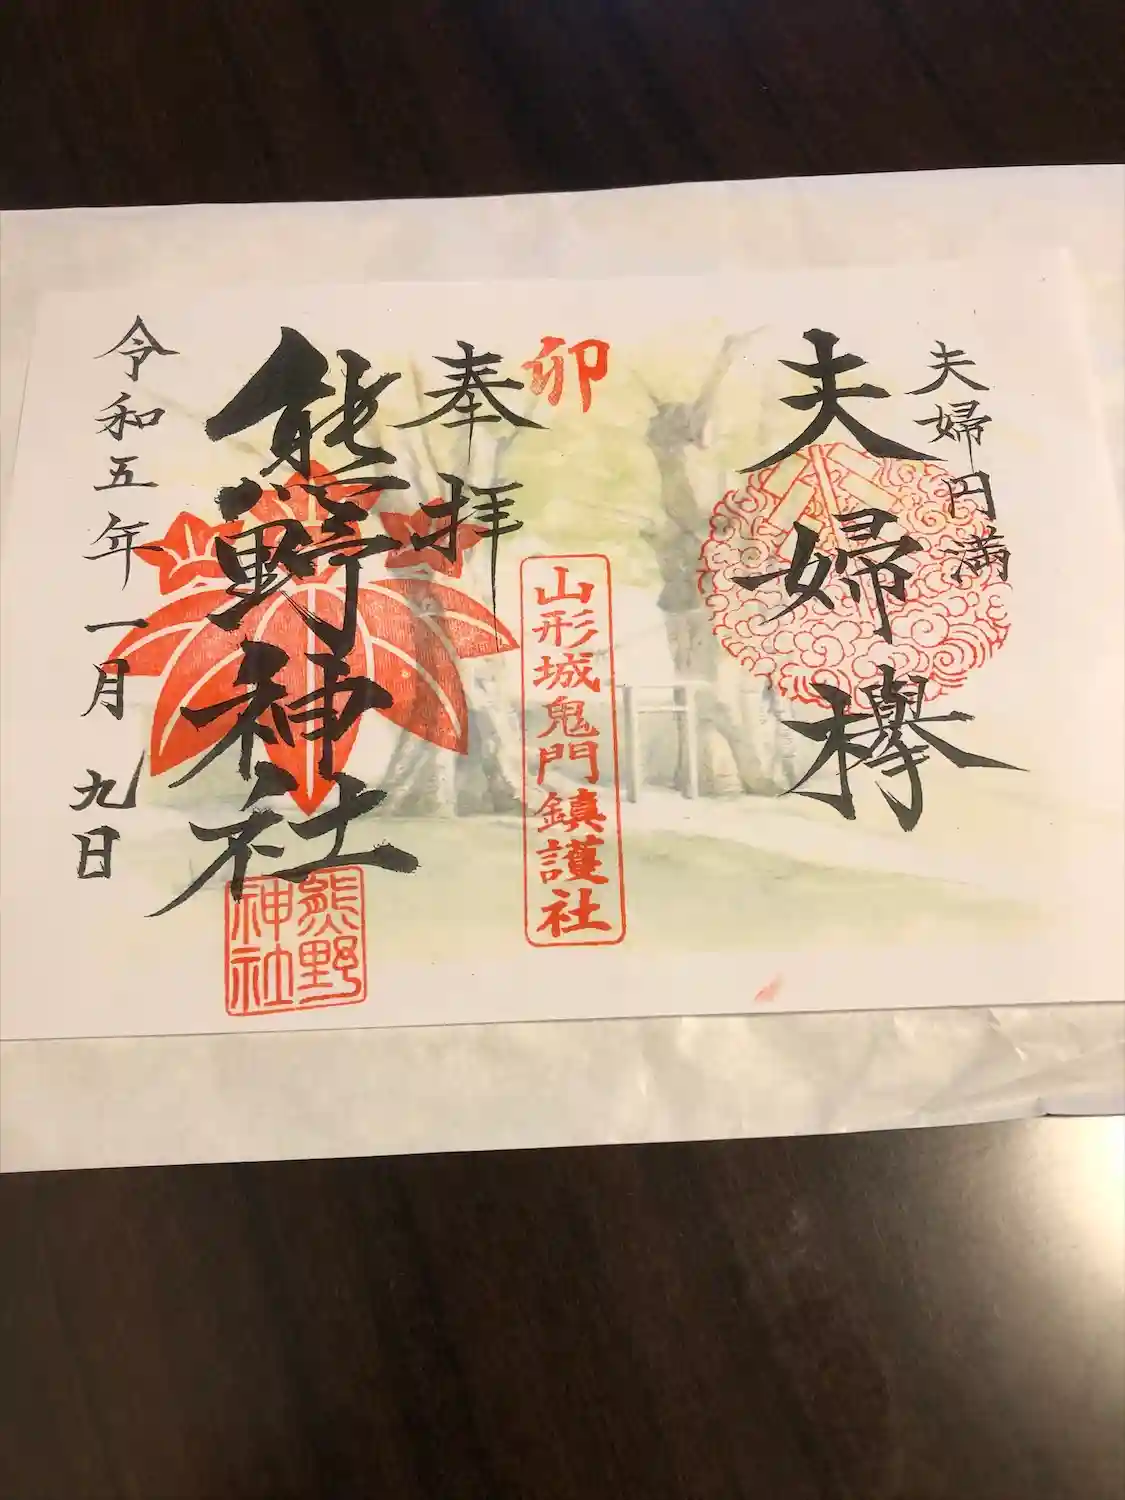 夫婦円満
夫婦欅
卯
山形城鬼門鎮護社
奉拝
熊野神社
熊野神社
令和五年一月九日